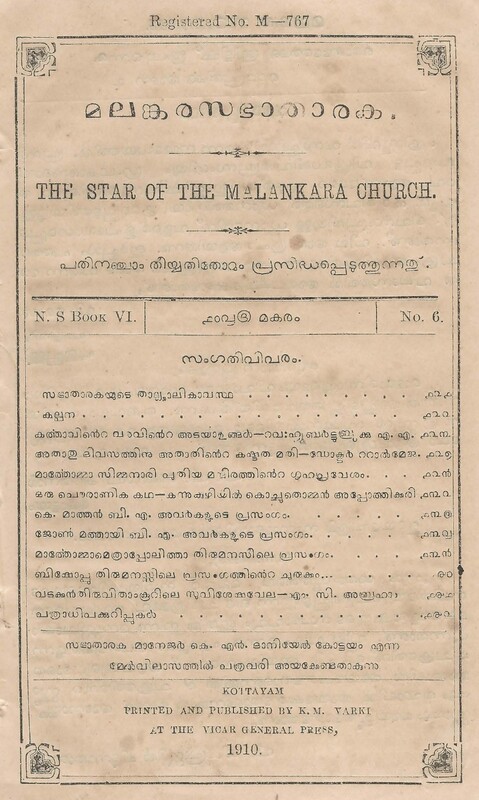 Registered No. M—767
മലങ്കരസഭാതാരക.
THE STAR OF THE MALANKARA CHURCH.
പതിനഞ്ചാം തീയ്യതിതോറും പ്രസിദ്ധപ്പെടുത്തുന്നതു്.
N. S BOOK VI.
മകരം
No. 6.
സംഗതിവിവരം.
സഭാതാരകയുടെ താല്ക്കാലികാവസ്ഥ
കല്പന
കൎത്താവിൻെറ വരവിൻെറ അടയാളങ്ങൾ— എ. എ.
അതാതു ദിവസത്തിനു അതാതിൻെറ കഷ്ടത മതി—ഡോക്ടർ
മാൎത്തോമ്മാ സിമ്മനാരി പുതിയ മന്ദിരത്തിൻെറ ഗൃഹപ്രവേശം.
ഒരു പൌരാണിക കഥ— കൊച്ചുതൊമ്മൻ അപ്പോത്തിക്കരി
കെ. മാത്തൻ ബി. എ. അവർകളുടെ പ്രസംഗം.
ജോൺ മത്തായി ബി. എ. അവർകളുടെ പ്രസംഗം.
മാൎത്തോമ്മാമെത്രാപ്പോലീത്താ തിരുമനസിലെ പ്രസംഗം.
ബിഷോപ്പു തിരുമനസ്സിലെ പ്രസംഗത്തിൻെറ ചുരുക്കം...
വടക്കൻതിരുവിതാംകൂറിലെ സുവിശേഷവേല—എം. സി. അബ്രഹാം
പത്രാധിപക്കുറിപ്പുകൾ
സഭാതാരക മാനേജർ കെ. എൻ. ദാനിയേൽ കോട്ടയം എന്ന
മേൽവിലാസത്തിൽ പത്രവരി അയക്കേണ്ടതാകുന്നു
KOTTAYAM
PRINTED AND PUBLISHED BY K. M. VARKI
AT THE VICAR GENERAL PRESS,
1910.